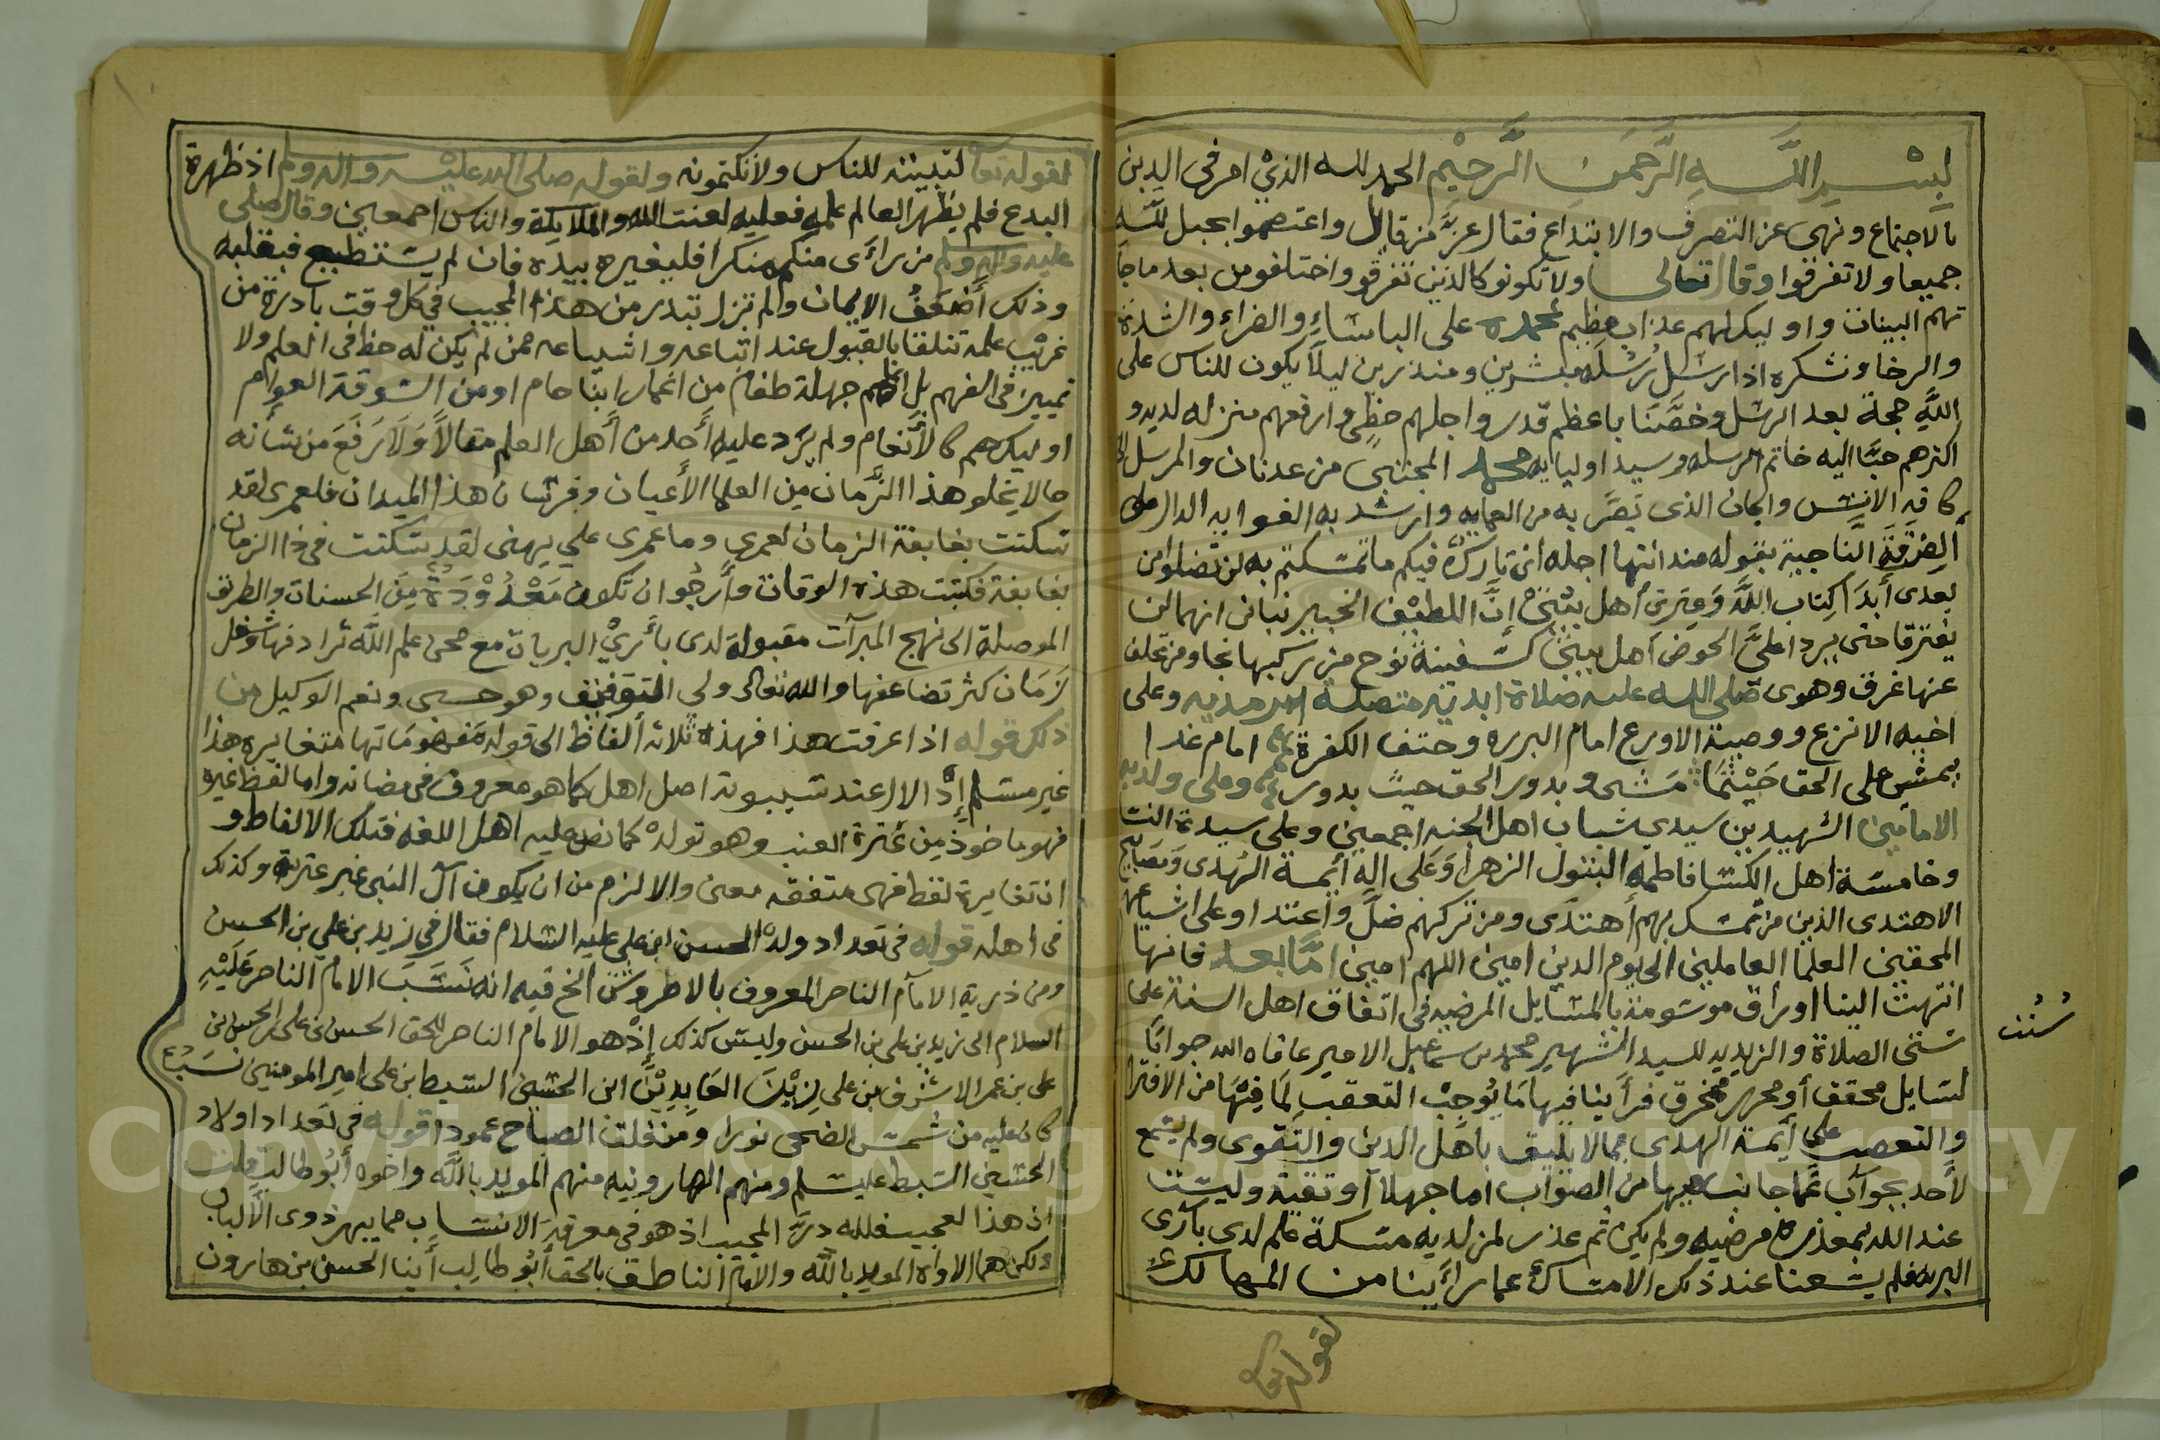 بسم الله الرحمن الرحيم الحمد لله الذي امر في الدين
بالاجتماع ونهى عن التصرف والابتداع فقال عز من قايل واعتصموا بحبل الله
جميعا ولا تفرقوا وقال تعالى ولا تكونو كالذين تفرقو واختلفو من بعد ما جا
تهم البينات واوليك لهم عذاب عظيم نحمده على الباساء والضراء والشدة
والرخا ونشكره اذ ارسل رسله مبشرين ومنذرين ليلا يكون للناس على
الله حجة بعد الرسل وخصنا باعظم قدر واجلهم حظ وارفعهم منزله لديه و
اكثرهم حبا اليه خاتم الرسله وسيد اوليايه محمد المجتبى من عدنان والمرسل الى
كافة الانس والجان الذي بصر به من العمايه وارشد به الغوايه الدال على
الفرقة الناجية بقوله عند انتها اجله اني تارك فيكم ما تمسكتم به لن تضلوا من
بعدى أبدا كتاب الله وعترتي أهل بيتي ان اللطيف الخبير نباني انهما لن
يفترقا حتى يردا علي الحوض اهل بيتي كسفينة نوح من ركبها نجا ومن تخلف
عنها غرق وهوى صلى الله عليه صلاة ابدية متصلة سرمديه وعلى
اخيه الانزع ووصية الاورع امام البرره وحتف الكفرة علي امام غدا
يمشى على الحق حيثما مشى ويدور الحق حيث يدور وعلى ولديه
الامامين الشهيدين سيدي شباب اهل الجنه اجمعين وعلى سيدة النسا
وخامسة اهل الكسا فاطمه البتول الزهرا وعلى اله أئمة الهدى ومصابيح
الاهتدى الذين من تمسك بهم أهتدى ومن تركهم ضل واعتدا وعلى اشياعهم
المحقين العلما العاملين الى يوم الدين امين اللهم امين اما بعد فانها
انتهت الينا اوراق موسومة بالمسايل المرضيه في اتفاق اهل السنة على
سنن
سنتى الصلاة والزيديه للسيد الشهير محمد بن سماعيل الامير عافاه الله جوابا
لسايل محقق أو محرر مخرق فرأينا فيها ما يوجب التعقب لما فيها من الافترا
والتعصب على أيمة الهدى بما لا يليق باهل الدين والتقوى ولم يسع
لأحد بجواب عما جانب فيها من الصواب اما جهلا أو تقية وليست
عند الله بمعذره مرضيه ولم يكن ثم عذر لمن لديه مسكة علم لدى بآرى
البريه فلم يسعنا عند ذلك الامساك عما رأينا من المهالك
لقوله تعا
لقوله تعا لتبيننه للناس ولا تكتمونه ولقوله صلى الله عليه واله وسلم اذ ظهرة
البدع فلم يظهر العالم علمه فعليه لعنت الله والملايكة والناس اجمعين وقال صلى
عليه واله وسلم من رأى منكم منكرا فليغيره بيده فان لم يستطيع فبقلبه
وذلك أضعف الايمان ولم تزل تبدر من هذا المجيب في كل وقت بادرة من
غريب علمه تتلقا بالقبول عند اتباعه واشياعه ممن لم يكن له حظ في العلم ولا
تمييز في الفهم بل انهم جهلة طغام من اغمار ابنا حام او من السوقة العوام
اوليك هم كالأنعام ولم يرد عليه أحد من أهل العلم مقالا ولا رفع من شأنه
حالا يخلو هذا الزمان من العلما الأعيان وفرسان هذا الميدان فلعمري لقد
تسكتت بغابغة الزمان لعمري وما عمري علي بهين لقد سكتت في ذا الزمان
بغابغة فكتبت هذه الورقات وأرجو ان تكون معدودة من الحسنات والطريق
الموصلة الى نهج المبرآت مقبولة لدى بأري البريات مع صحي علم الله تراد فيها وشغل
زمان كثر تضاعفها والله تعالى ولي التوفيق وهو حسبي ونعم الوكيل من
ذلك قوله اذا عرفت هذا فهذه ثلاثه ألفاظ الى قوله مفهوماتها متغايره هذا
غير مسلم إذ الال عند سيبويه اصل اهل كما هو معروف في مضانه واما لفظ عترة
فهو ماخوذ من عترة العنب وهو تولده كما نص عليه اهل اللغه فتلك الالفاظ و
ان تغايرة لفظ فهى متفقه معنى والا لزم من ان يكون آل النبي غير عترته وكذلك
في اهله قوله في تعداد ولد الحسن ابن علي عليه السلام فقال في زيد بن علي بن الحسن
ومن ذرية الامآم الناصر المعروف بالاطروش الخ فيه انه نسب الامام الناصر عليه
السلام الى زيد بن علي بن الحسن وليس كذلك إذ هو الامام الناصر للحق الحسن بن علي بن الحسن بن
على بن عمر الاشرف بن على زين العابدين ابن الحسين السبط ابن على امير المومنين نسب
كان عليه من شمس الضحى نورا ومن فلق الصباح عمودا قوله في تعداد اولاد
الحسين السبط عليه سلم ومنهم الهارونيه منهم المويد بالله واخوه أبو طالب قلت
ان هذا لعجيب فلله در المجيب اذ هو في معرفة الانتساب مما يبهر ذوى الألباب
ولكن هما الاواه المويد بالله والامام الناطق بالحق أبو طالب أبنا الحسين بن هارون